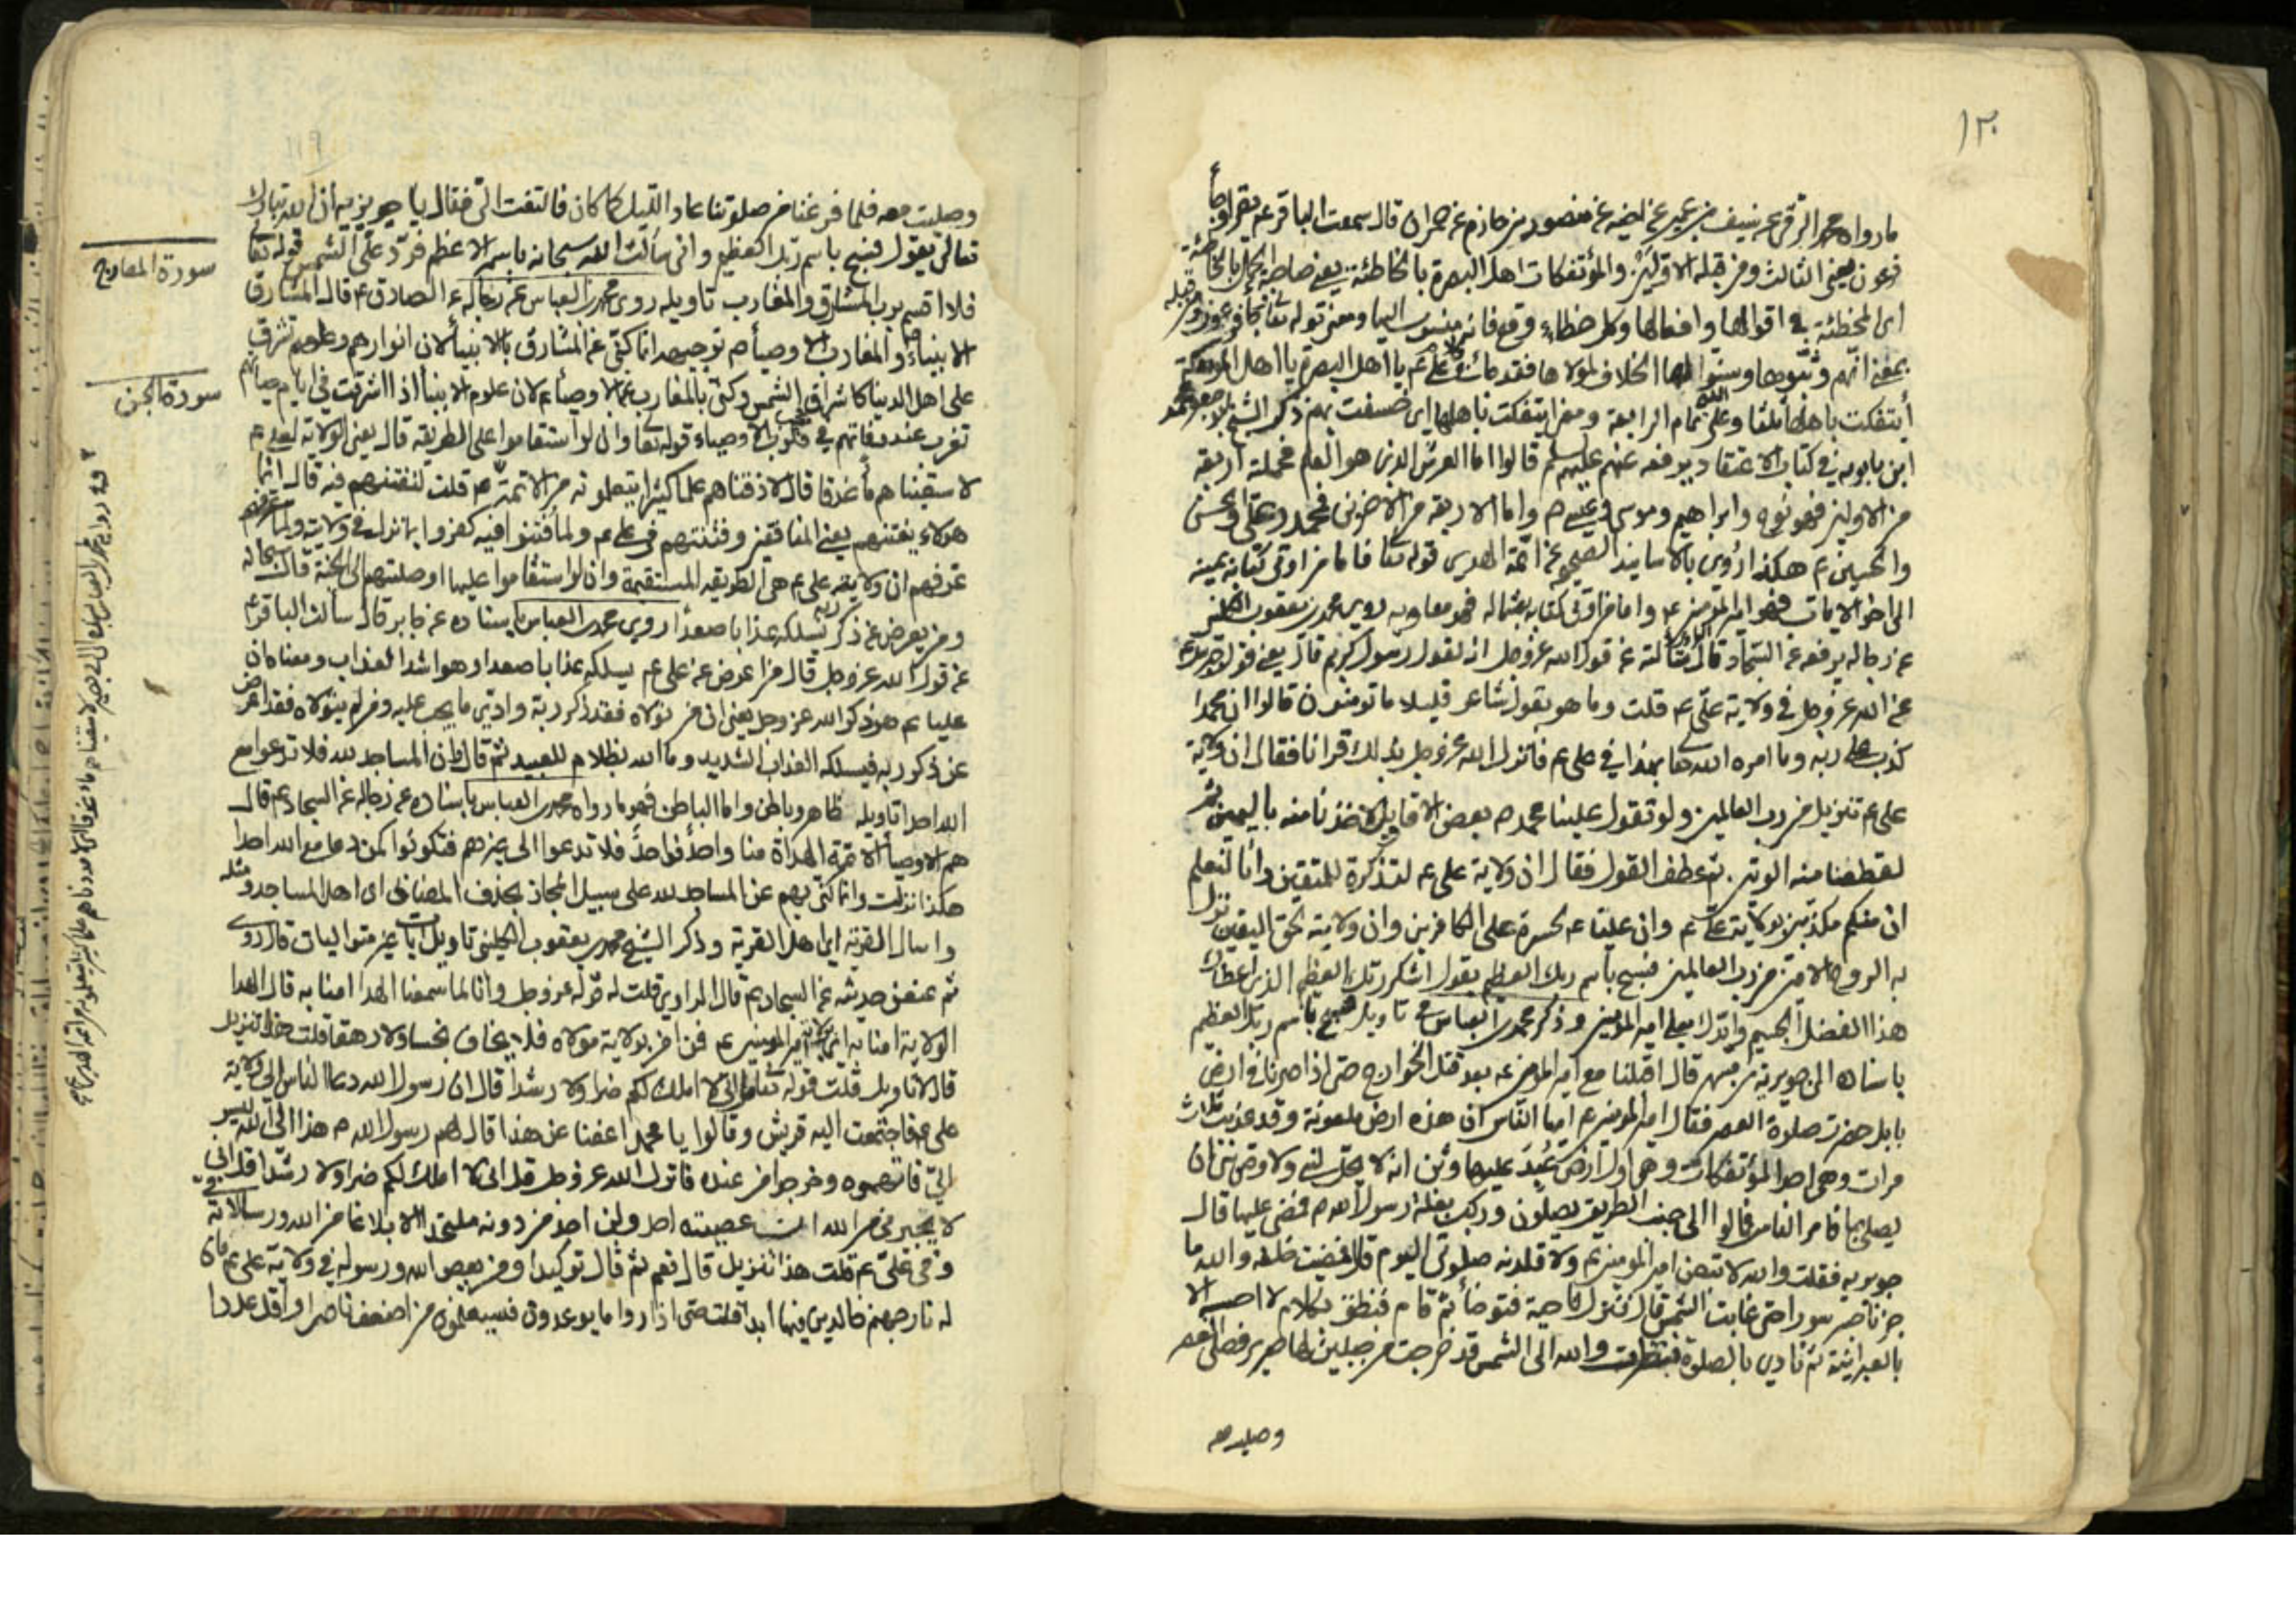 ١٢٠
ما رواه محمد البرقى عن سيف بن عميرة عن اخيه عن منصور بن حازم عن حمران قال سمعت الباقر ع يقرأ وجاء
فرعون يعنى الثالث ومن قبله الاولين والمؤتفكات اهل البصرة بالخاطئة يعنى صاحبة الجمل بالخاطئة
اى المخطئة فى اقوالها وافعالها وكل خطاء وقع فانه منسوب اليها ومعنى قوله تعا وجاء فرعون ومن قبله
بمعنى انهم وسنوا لها الخلاف لمولاها فقد قال على ع يا اهل البصرة يا اهل المؤتفكة
أيتفكت باهلها ثلثا وعلى الله تمام الرابعة ومعنى ايتفكت باهلها اى خسفت بهم ذكر الشيخ ابو جعفر محمد
ابن بابويه فى كتاب الاعتقاد يرفعه عنهم عليهم السلم قالوا اما العرش الذى هو العلم فحملته اربعة
من الاولين فهو نوح وابراهيم وموسى وعيسى م واما الاربعة من الاخرين محمد وعلى والحسن
والحسين ع هكذا روى بالاسانيد الصحيحة عن ائمة الهدى قوله تعا فاما من اوتى كتابه بيمينه
الى اخر الايات فهو امير المؤمنين ع واما من اوتى كتابه بشماله فهو معاويه روى محمد بن يعقوب الكلينى
عن رجاله يرفعه عن السجاد قال سألته عن قول الله عز وجل انه لقول رسول كريم قال يعنى قول جبرئيل
عن الله عز وجل فى ولاية على ع قلت وما هو بقول شاعر قليلا ما تومنون قالوا ان محمدا
كذب على ربه وما امره الله بهذا فى على ع فانزل الله عز وجل بذلك قرانا فقال ان ولاية
على ع تنزيل من رب العالمين ولو تقول علينا محمد ص بعض الاقاويل لاخذنا منه باليمين ثم
لقطعنا منه الوتين ثم عطف القول فقال ان ولاية على ع لتذكرة للمتقين وانا لنعلم
ان منكم مكذبين بولاية على ع وان عليا ع لحسرة على الكافرين وان ولايته لحق اليقين نزل
به الروح الامين من رب العالمين فسبح باسم ربك العظيم يقول اشكر ربك العظيم الذى اعطاك
هذا الفضل الجسيم وايدك بعلى امير المؤمنين وذكر محمد بن العباس فى تاويل فسبح باسم ربك العظيم
باسناده الى جويرية بن مسهر قال اقبلنا مع امير المؤمنين ع بعد قتل الخوارج حتى اذا صرنا فى ارض
بابل حضرت صلوة العصر فقال امير المؤمنين ع ايها الناس ان هذه ارض ملعونة وقد عذبت ثلاث
مرات وهى احد المؤتفكات وهى اول ارض عُبد عليها وثن انه لا يحل لنبى ولا وصى نبى ان
يصلى بها فامر الناس فمالوا الى جنب الطريق يصلون وركب بغلة رسول الله ص فمضى عليها قال
جويريه فقلت والله لاتبعن امير المؤمنين ع ولاقلدنه صلوتى اليوم قال فمضيت خلفه والله ما
جزنا جسر سورا حتى غابت الشمس قال فنزل ناحية فتوضأ ثم قام فنطق بكلام لا احسبه الا
بالعبرانية ثم نادى بالصلوة فنظرت والله الى الشمس قد خرجت من جبلين لها صرير فصلى العصر
وصليت معه
١١٩
وصليت معه فلما فرغنا من صلوتنا عاد الليل كما كان فالتفت الىّ فقال يا جويرية ان الله تبارك
تعالى يقول فسبح باسم ربك العظيم وانى سألت الله سبحانه باسمه الاعظم فرد على الشمس قوله تعا
فلا اقسم برب المشارق والمغارب تاويله روى محمد بن العباس عن رجاله عن الصادق ع قال المشارق
الانبياء والمغارب الاوصياء م توجيهه انما كنّى عن المشارق بالانبياء لان انوارهم وعلومهم تشرق
على اهل الدنيا كاشراق الشمس وكنى بالمغارب عن الاوصياء م لان علوم الانبياء اذا اشرقت فى ايام حياتهم
تغرب عند وفاتهم فى قلوب الاوصياء قوله تعا وان لو استقاموا على الطريقة قال يعنى الولاية لعلى ع
لاسقيناهم ماء غدقا قال لاذقناهم علما كثيرا يتعلمونه من الائمة ع قلت لنفتنهم فيه قال انما
هؤلاء يفتنهم يعنى المنافقين وفتنتهم فى على ع ولما فتنوا فيه كفروا بما نزل فى ولايته ولما
عرفهم ان ولاية على ع هى الطريقة المستقيمة وان لو استقاموا عليها اوصلتهم الى الجنة قال سبحانه
ومن يعرض عن ذكر ربه يسلكه عذابا صعدا روى محمد بن العباس باسناده عن جابر قال سألت الباقر ع
عن قول الله عز وجل قال من اعرض عن على ع يسلكه عذابا صعدا وهو اشد العذاب ومعناه ان
عليا ع هو ذكر الله عز وجل يعنى ان من تولاه فقد ذكر ربه وادى ما يجب عليه ومن لم يتولاه فقد اعرض
عن ذكر ربه فيسلكه العذاب الشديد وما الله بظلام للعبيد ثم قال وان المساجد لله فلا تدعوا مع
الله احدا تاويله ظاهر وباطن واما الباطن فهو ما رواه محمد بن العباس باسناده عن رجاله عن السجاد ع قال
هم الاوصياء الائمة الهداة منا واحدا فواحدا فلا تدعوا الى غيرهم فتكونوا كمن دعا مع الله احدا
هكذا نزلت وانما كنّى بهم عن المساجد لله على سبيل المجاز بحذف المضاف اى اهل المساجد ومثله
واسال القرية اى اهل القرية وذكر الشيخ محمد بن يعقوب الكلينى تاويل ايات غير متواليات قال روى
ثم عنعن حديثه عن السجاد ع قال الراوى قلت له قوله عز وجل وانا لما سمعنا الهدا امنا به قال الهدا
الولاية امنا به اى بولاية امير المومنين ع فمن امن بولاية مولاه فلا يخاف بخسا ولا رهقا قلت هذا تنزيل
قال لا تاويل قلت قوله تعا انى لا املك لكم ضرا ولا رشدا قال ان رسول الله دعا الناس الى ولاية
على ع فاجتمعت اليه قريش وقالوا يا محمد اعفنا عن هذا قال لهم رسول الله ص هذا الى الله ليس
الىّ فاتهموه وخرجوا من عنده فانزل الله عز وجل قل انى لا املك لكم ضرا ولا رشدا قل انى
لا يجيرنى من الله ان عصيته احد ولن اجد من دونه ملتحدا الا بلاغا من الله ورسالاته
فى علىّ ع قلت هذا تنزيل قال نعم ثم قال توكيدا ومن يعص الله ورسوله فى ولاية على ع فان
له نار جهنم خالدين فيها ابدا قلت حتى اذا راوا ما يوعدون فسيعلمون من اضعف ناصرا واقل عددا
سورة المعارج
سورة الجن